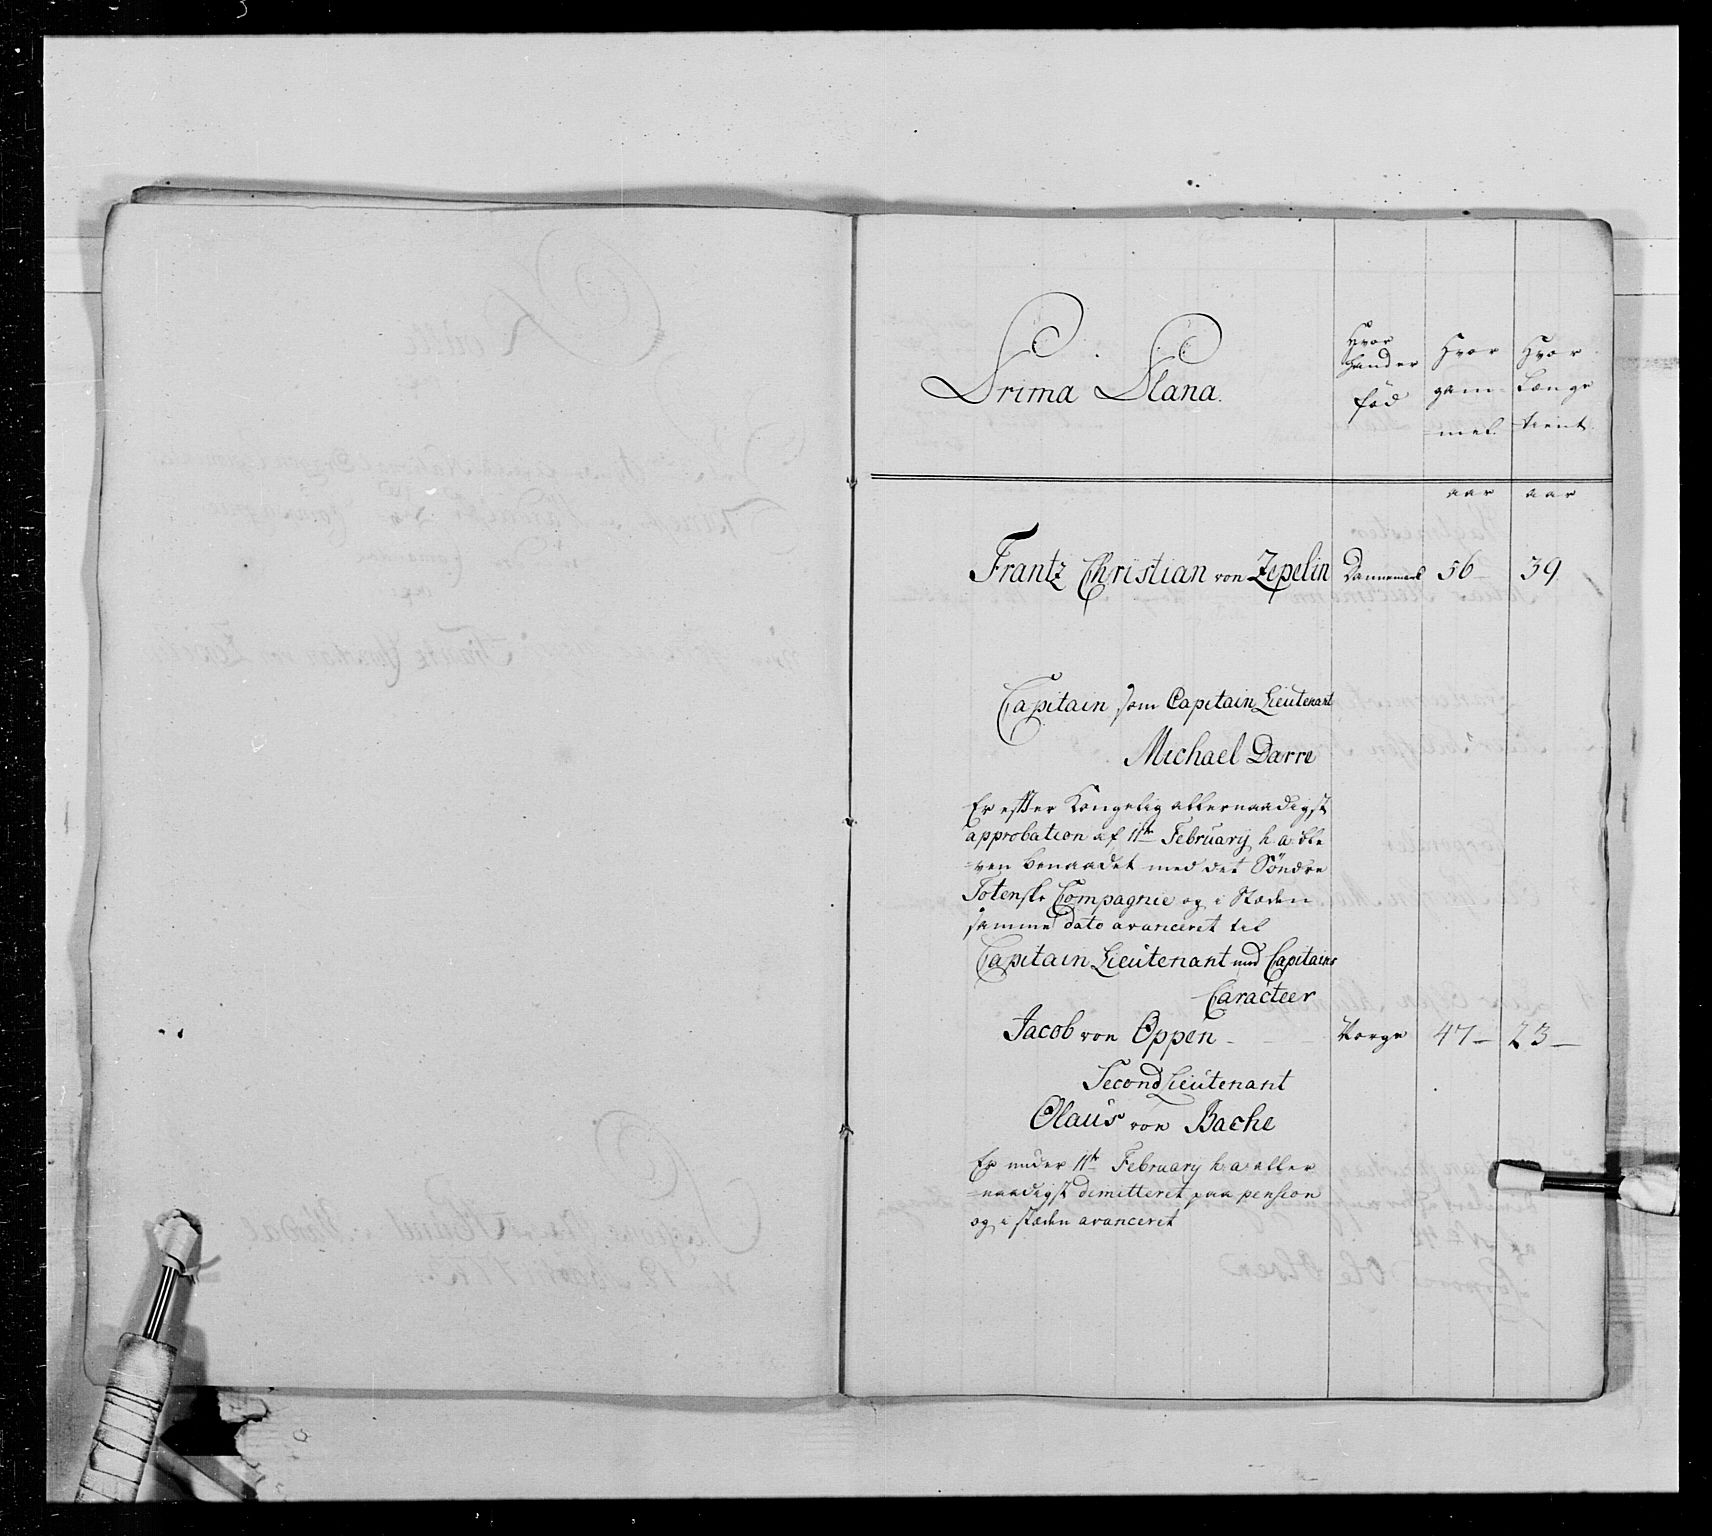 Prima Plana.
Hvor
hander
fød
Hvor
gam=
=mel.
Hvor
Længe
tient.
aar aar
Frantz Christian von Zepelin Dannemark 56 39.
Capitain som Capitain Lieutenant
Michael Darre
Er efter Kongelig allernaadigst
approbation af 11te February h. a. ble
=ven benaadet med det Söndre
Totenske Compagnie og i Stæden
samme dato avanceret til
Capitain Lieutenant med Capitains
Caracteer
Jacob von Oppen - Norge 47 - 23 -
Second Lieutenant
Olaus von Bache
Er under 11te February h. a. aller
=naadigst dimitteret paa pension
og i stæden avanceret